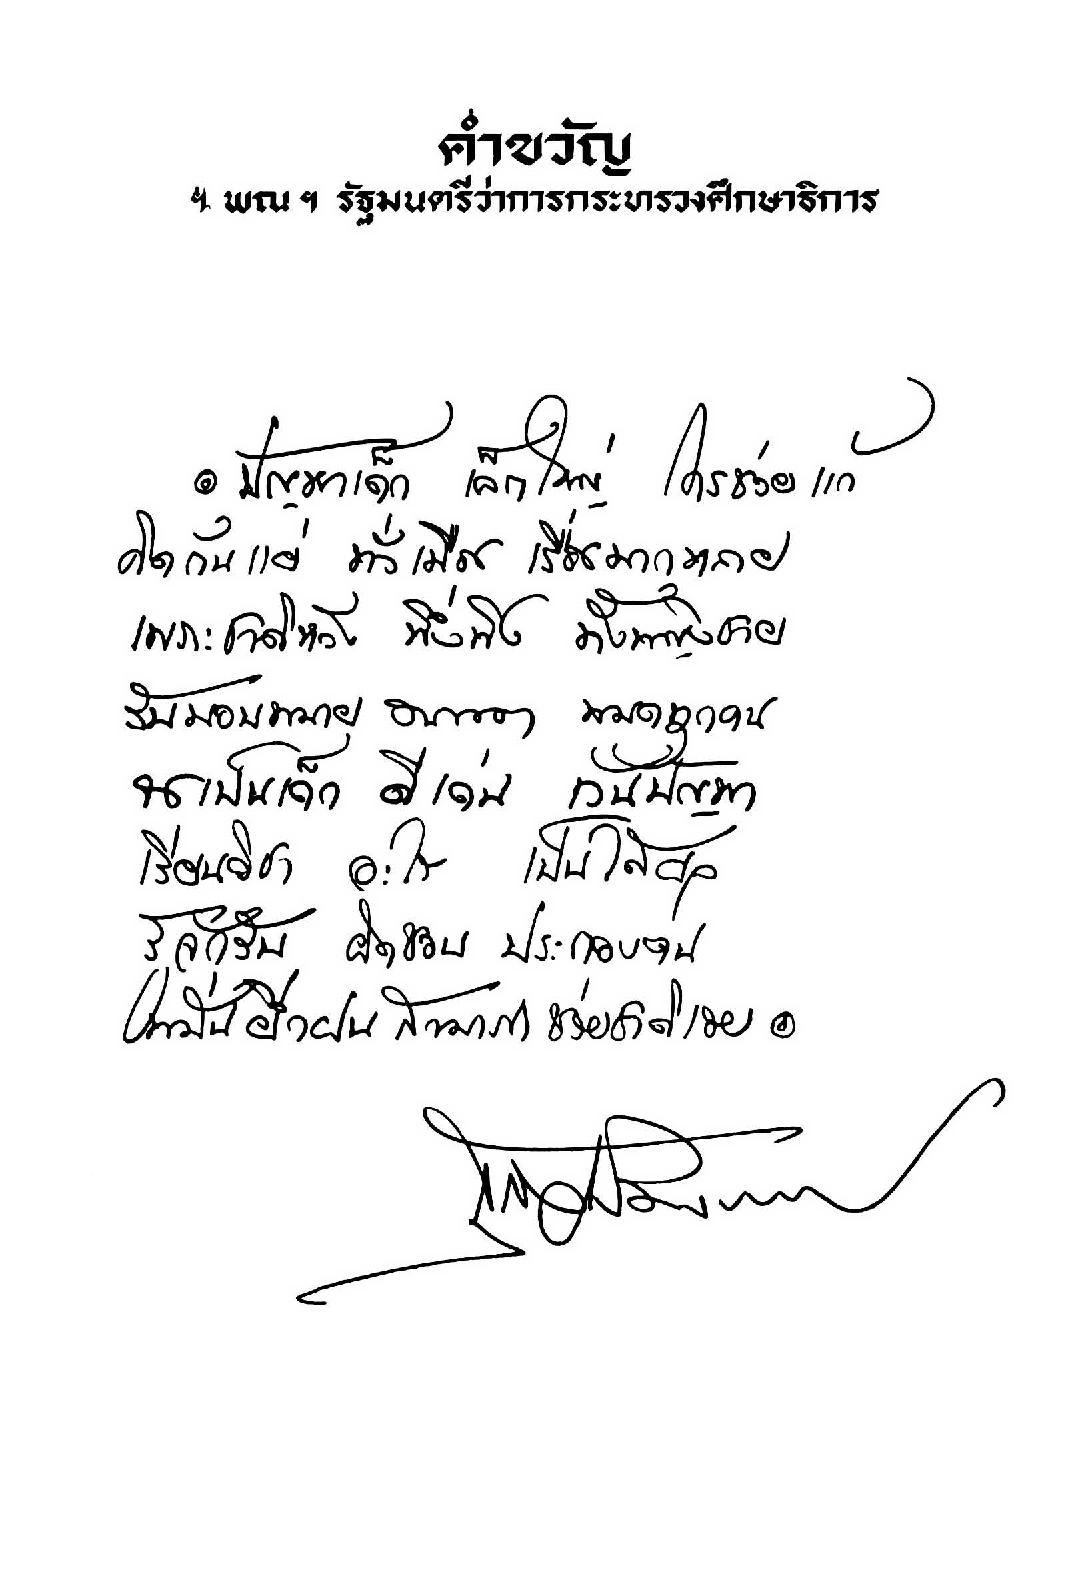 คำขวัญ
ฯ พณ ฯ รัฐมนตรีว่าการกระทรวงศึกษาธิการ
๏ ปัญหาเด็ก เล็กใหญ่ ใครช่วยแก้
คิดกันแย่ ทั่วเมือง เรื่องมากหลาย
เพราะชาติหวัง พึ่งพิง ทั้งหญิงชาย
รับมอบหมาย อนาคต หมดทุกคน
มาเป็นเด็ก ดีเด่น เว้นปัญหา
เรียนวิชา อะไร เป็นได้ผล
รู้จักรับ ผิดชอบ ประกอบตน
ให้มั่น ช่วยชาติเอย ๏